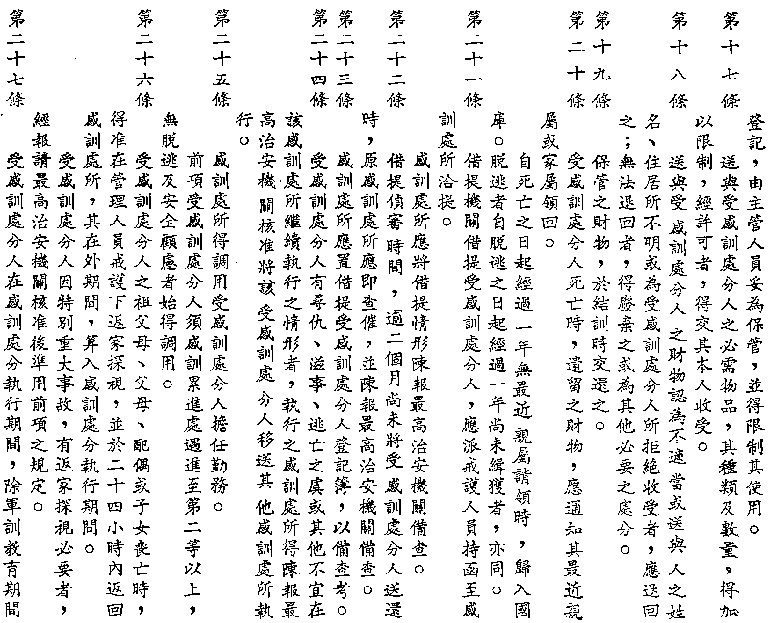 登記，由主管人員妥為保管，並得限制其使用。
第十七條　送與受感訓處分人之必需物品，其種類及數量，得加
以限制，經許可者，得交其本人收受。
第十八條　送與受感訓處分人之財物認為不適當或送與人之姓
名、住居所不明或為受感訓處分人所拒絕收受者，應送回
之；無法退回者，得廢棄之或為其他必要之處分。
第十九條　保管之財物，於結訓時交還之。
第二十條　受感訓處分人死亡時，遺留之財物，應通知其最近親
屬或家屬領回。
自死亡之日起經過一年無最近親屬請領時，歸入國
庫。脫逃者自脫逃之日起經過一年尚未緝獲者，亦同。
第二十一條　借提機關借提受感訓處分人，應派戒護人員持函至感
訓處所洽提。
第二十二條　感訓處所應將借提情形陳報最高治安機關備查。
借提偵審時間，逾二個月尚未將受感訓處分人送還
時，原感訓處所應即查催，並陳報最高治安機關備查。
第二十三條　感訓處所應置借提受感訓處分人登記簿，以備查考。
第二十四條　受感訓處分人有尋仇、滋事、逃亡之虞或其他不宜在
該感訓處所繼續執行之情形者，執行之感訓處所得陳報最
高治安機關核准將該受感訓處分人移送其他感訓處所執
行。
第二十五條　感訓處所得調用受感訓處分人擔任勤務。
前項受感訓處分人須感訓累進處遇進至第二等以上，
無脫逃及安全顧慮者始得調用。
第二十六條　受感訓處分人之祖父母、父母、配偶或子女喪亡時，
得准在管理人員戒護下返家探視，並於二十四小時內返回
感訓處所，其在外期間，算入感訓處分執行期間。
受感訓處分人因特別重大事故，有返家探視必要者，
經報請最高治安機關核准後準用前項之規定。
第二十七條　受感訓處分人在感訓處分執行期間，除軍訓教育期間